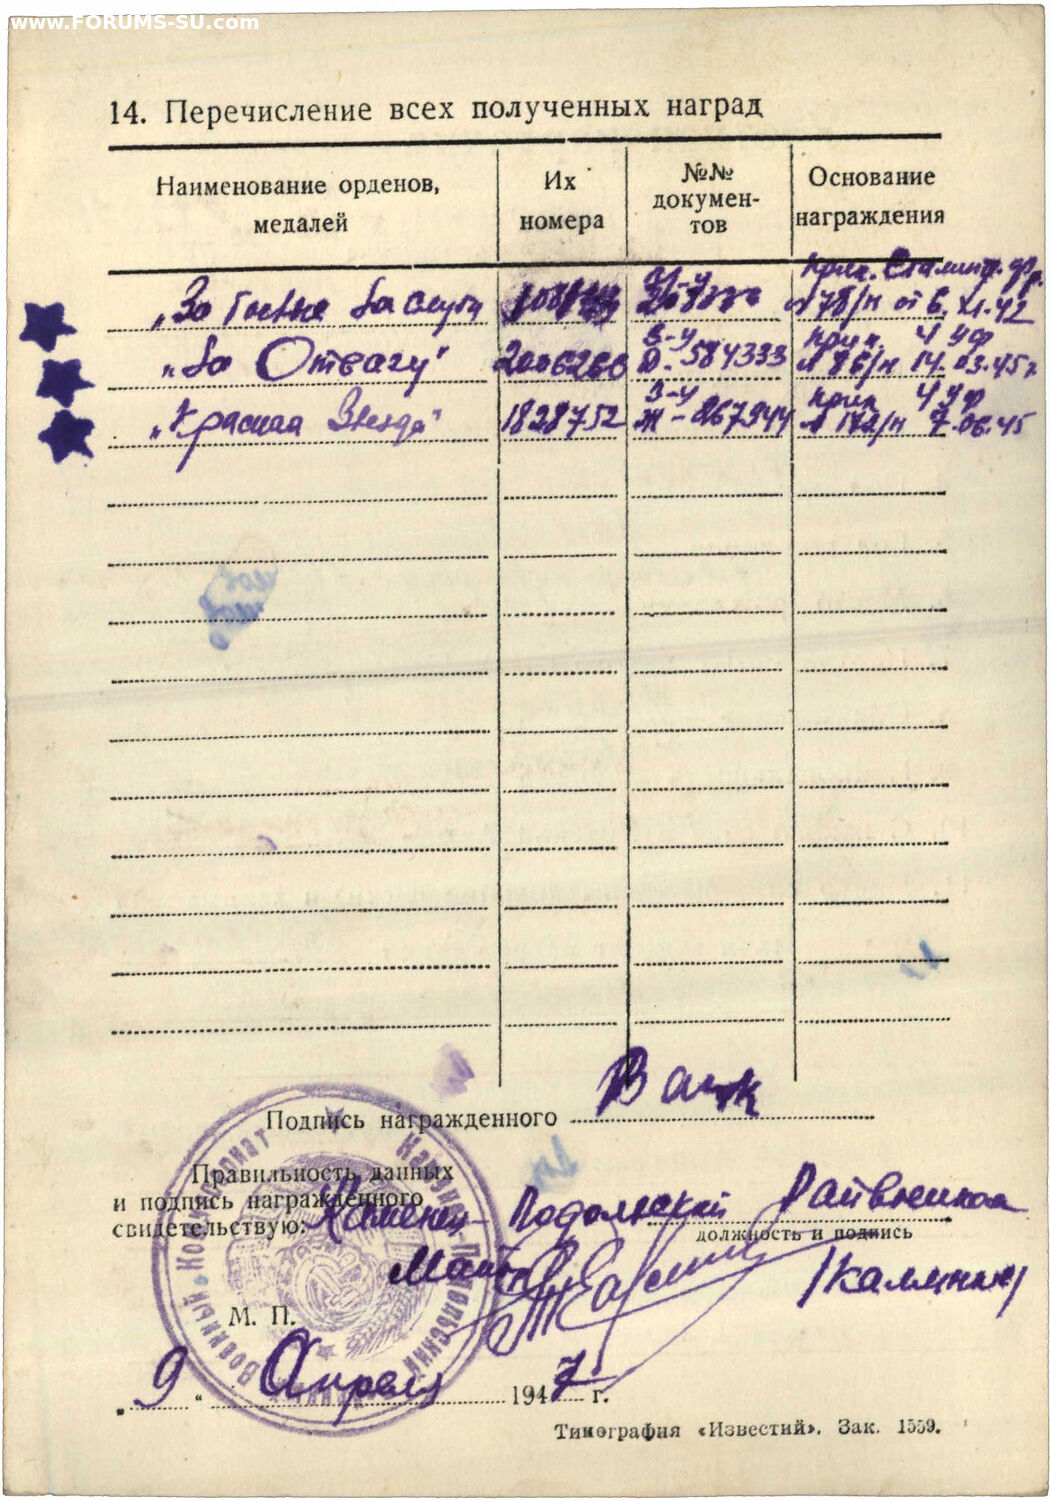 www.FORUMS-SU.com
14. Перечисление всех полученных наград
Наименование орденов, медалей
Их номера
№№ документов
Основание награждения
„За Боевые Заслуги
Прик. Сталингр. фр.
№ 78/н от 6.XI.42
„За Отвагу"
2006260
З-У
Д-584333
Прик. 4 Уф
№ 86/н 14.03.45г
„Красная Звезда"
1828752
З-У
Ж-867944
Прик 4 Уф
№ 172/н 7.06.45
Подпись награжденного
Правильность данных
и подпись награжденного
свидетельствую: Каменец-Подольский Райвоенком
должность и подпись
Майор /Калинин/
М. П.
„ 9 “ Апреля 1947 г.
Военный Комиссариат
Типография «Известий». Зак. 1559.